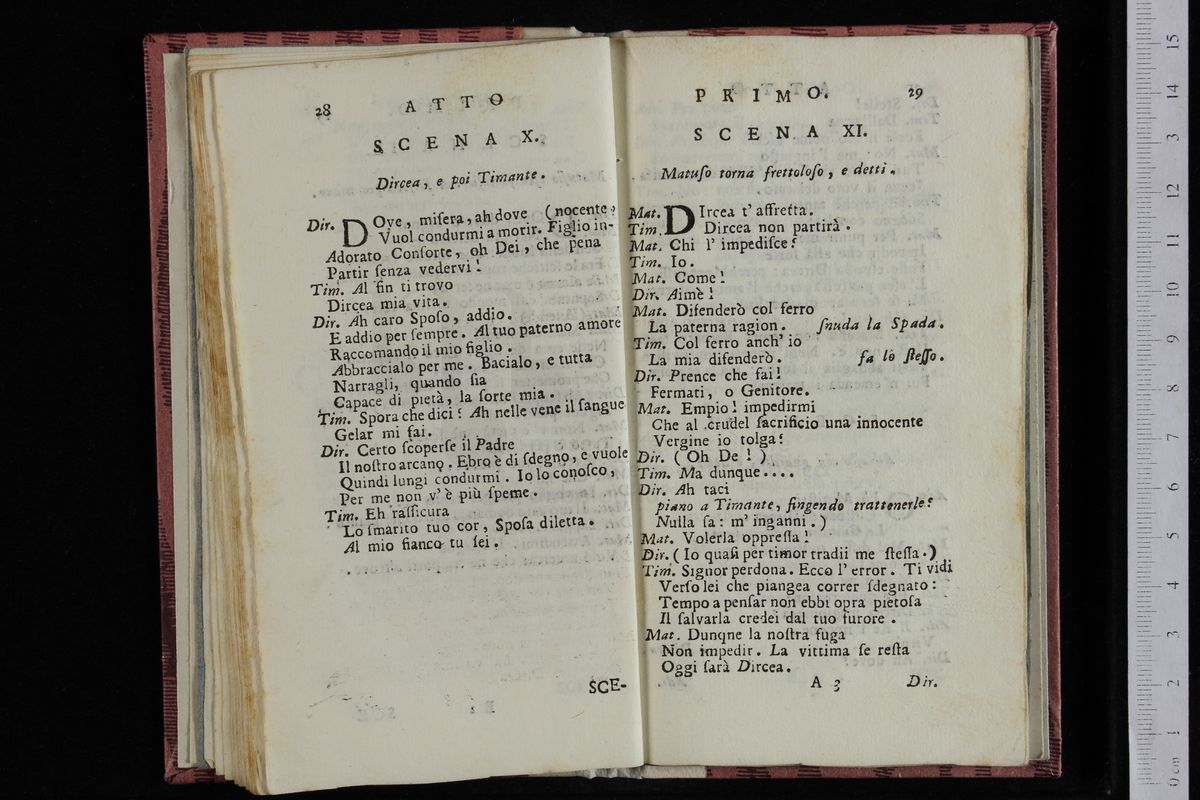 28 ATTO
SCENA X.
Dircea, e poi Timante.
Dir. DOve, miſera, ah dove (nocente?
Vuol condurmi a morir. Figlio in-
Adorato Conſorte, oh Dei, che pena
Partir ſenza vedervi!
Tim. Al fin ti trovo
Dircea mia vita.
Dir. Ah caro Spoſo, addio.
E addio per ſempre. Al tuo paterno amore
Raccomando il mio figlio.
Abbraccialo per me. Bacialo, e tutta
Narragli, quando ſia
Capace di pietà, la ſorte mia.
Tim. Spora che dici? Ah nelle vene il ſangue
Gelar mi fai.
Dir. Certo ſcoperſe il Padre
Il noſtro arcano. Ebro è di ſdegno, e vuole
Quindi lungi condurmi. Io lo conoſco,
Per me non v' è più ſpeme.
Tim. Eh raſſicura
Lo ſmarito tuo cor, Spoſa diletta.
Al mio fianco tu ſei.
SCE-
PRIMO. 29
SCENA XI.
Matuſo torna frettoloſo, e detti.
Mat. DIrcea t' affretta.
Tim. Dircea non partirà.
Mat. Chi l' impediſce?
Tim. Io.
Mat. Come!
Dir. Aimè!
Mat. Difenderò col ferro
La paterna ragion. ſnuda la Spada.
Tim. Col ferro anch' io
La mia difenderò. fa lo ſteſſo.
Dir. Prence che fai!
Fermati, o Genitore.
Mat. Empio! impedirmi
Che al crudel ſacrificio una innocente
Vergine io tolga?
Dir. (Oh De!)
Tim. Ma dunque....
Dir. Ah taci
piano a Timante, fingendo trattenerle?
Nulla ſa: m' inganni.)
Mat. Volerla oppreſſa!
Dir. (Io quaſi per timor tradii me ſteſſa.)
Tim. Signor perdona. Ecco l' error. Ti vidi
Verſo lei che piangea correr ſdegnato:
Tempo a penſar non ebbi opra pietoſa
Il ſalvarla credei dal tuo furore.
Mat. Dunqne la noſtra fuga
Non impedir. La vittima ſe reſta
Oggi ſarà Dircea.
A 3 Dir.
15
14
13
12
11
10
9
8
7
6
5
4
3
2
1
0 cm